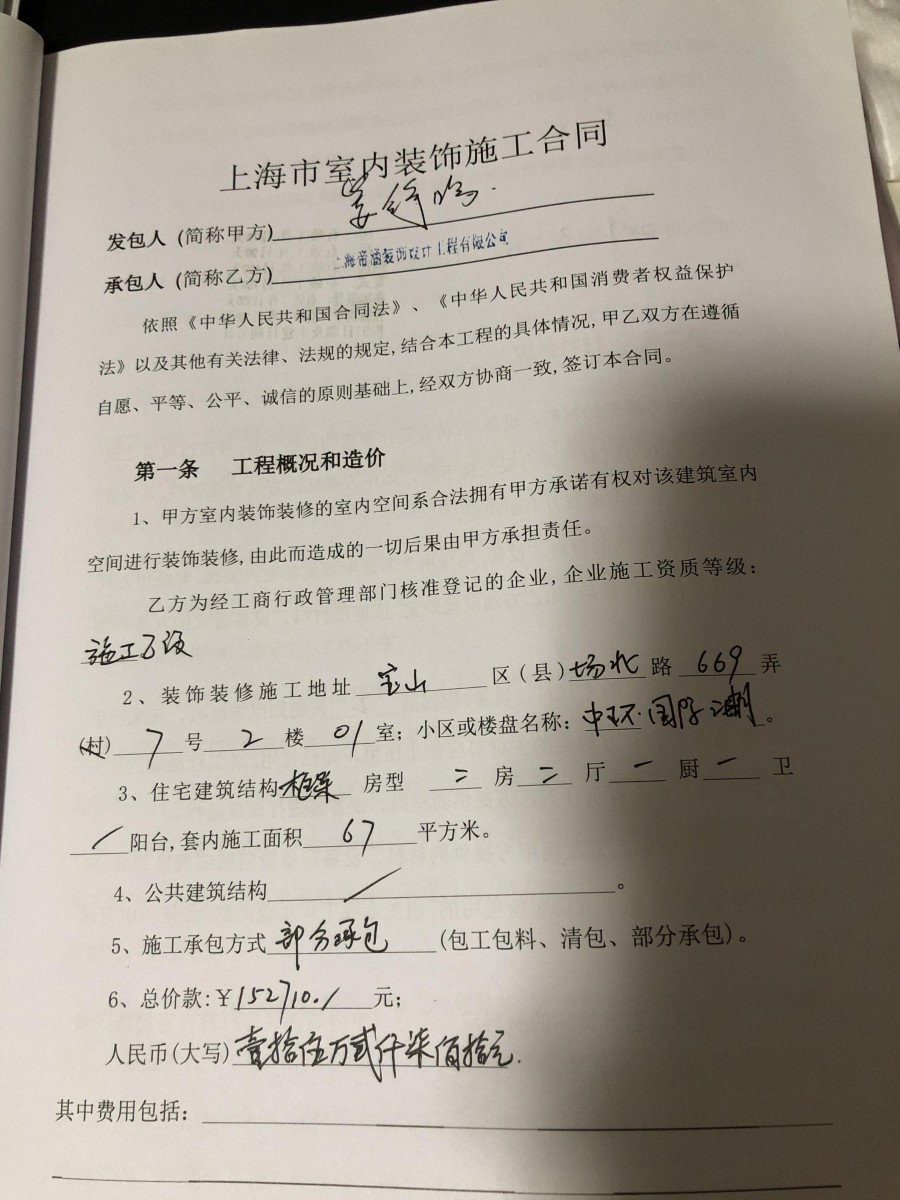 上海市室内装饰施工合同
发包人 (简称甲方)
承包人 (简称乙方) 上海帝涵装饰设计工程有限公司
依照《中华人民共和国合同法》、《中华人民共和国消费者权益保护
法》以及其他有关法律、法规的规定,结合本工程的具体情况,甲乙双方在遵循
自愿、平等、公平、诚信的原则基础上,经双方协商一致,签订本合同。
第一条 工程概况和造价
1、甲方室内装饰装修的室内空间系合法拥有甲方承诺有权对该建筑室内
空间进行装饰装修,由此而造成的一切后果由甲方承担责任。
乙方为经工商行政管理部门核准登记的企业,企业施工资质等级:
施工 级
2、装饰装修施工地址 宝山 区(县) 场北 路 669 弄
(村) 7 号 2 楼 01 室; 小区或楼盘名称: 中环·国际 。
3、住宅建筑结构 框架 房型 二 房 二 厅 一 厨 一 卫
/ 阳台,套内施工面积 67 平方米。
4、公共建筑结构 / 。
5、施工承包方式 部分承包 (包工包料、清包、部分承包)。
6、总价款:¥152710./ 元;
人民币(大写) 壹拾伍万贰仟柒佰拾元.
其中费用包括: